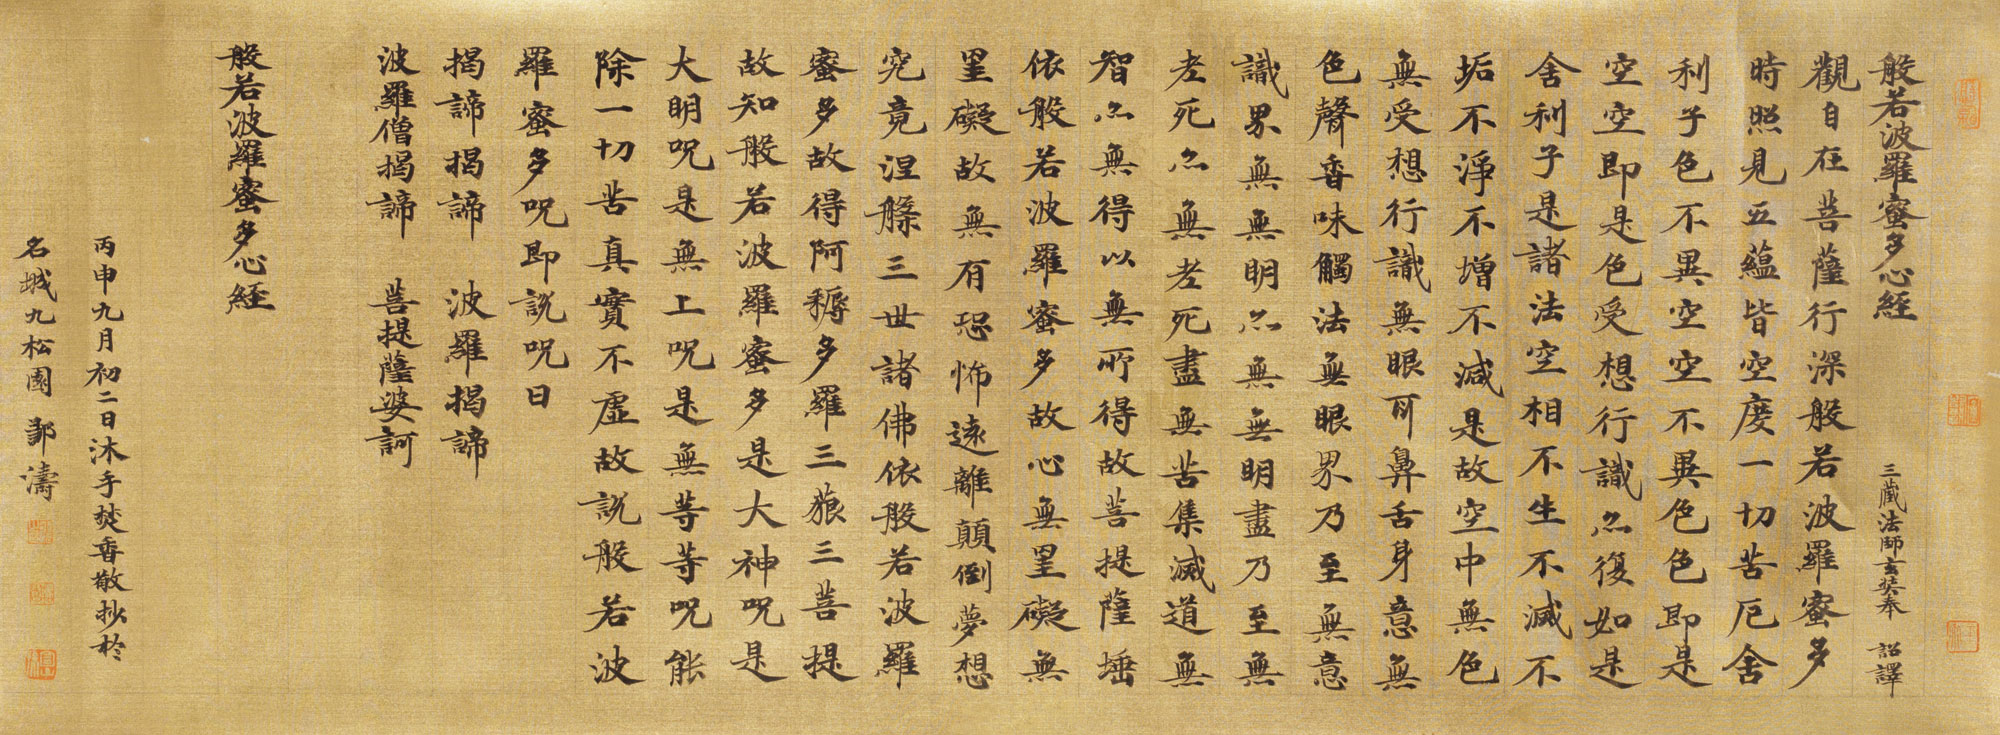 般若波羅蜜多心經
三藏法師玄奘奉 詔譯
觀自在菩薩行深般若波羅蜜多
時照見五蘊皆空度一切苦厄舍
利子色不異空空不異色色即是
空空即是色受想行識亦復如是
舍利子是諸法空相不生不滅不
垢不淨不增不減是故空中無色
無受想行識無眼耳鼻舌身意無
色聲香味觸法無眼界乃至無意
識界無無明亦無無明盡乃至無
老死亦無老死盡無苦集滅道無
智亦無得以無所得故菩提薩埵
依般若波羅蜜多故心無罣礙無
罣礙故無有恐怖遠離顛倒夢想
究竟涅槃三世諸佛依般若波羅
蜜多故得阿耨多羅三藐三菩提
故知般若波羅蜜多是大神呪是
大明呪是無上呪是無等等呪能
除一切苦真實不虛故說般若波
羅蜜多呪即說呪曰
揭諦揭諦 波羅揭諦
波羅僧揭諦 菩提薩婆訶
般若波羅蜜多心經
丙申九月初二日沐手焚香敬抄於
名城九松園 鄞濤